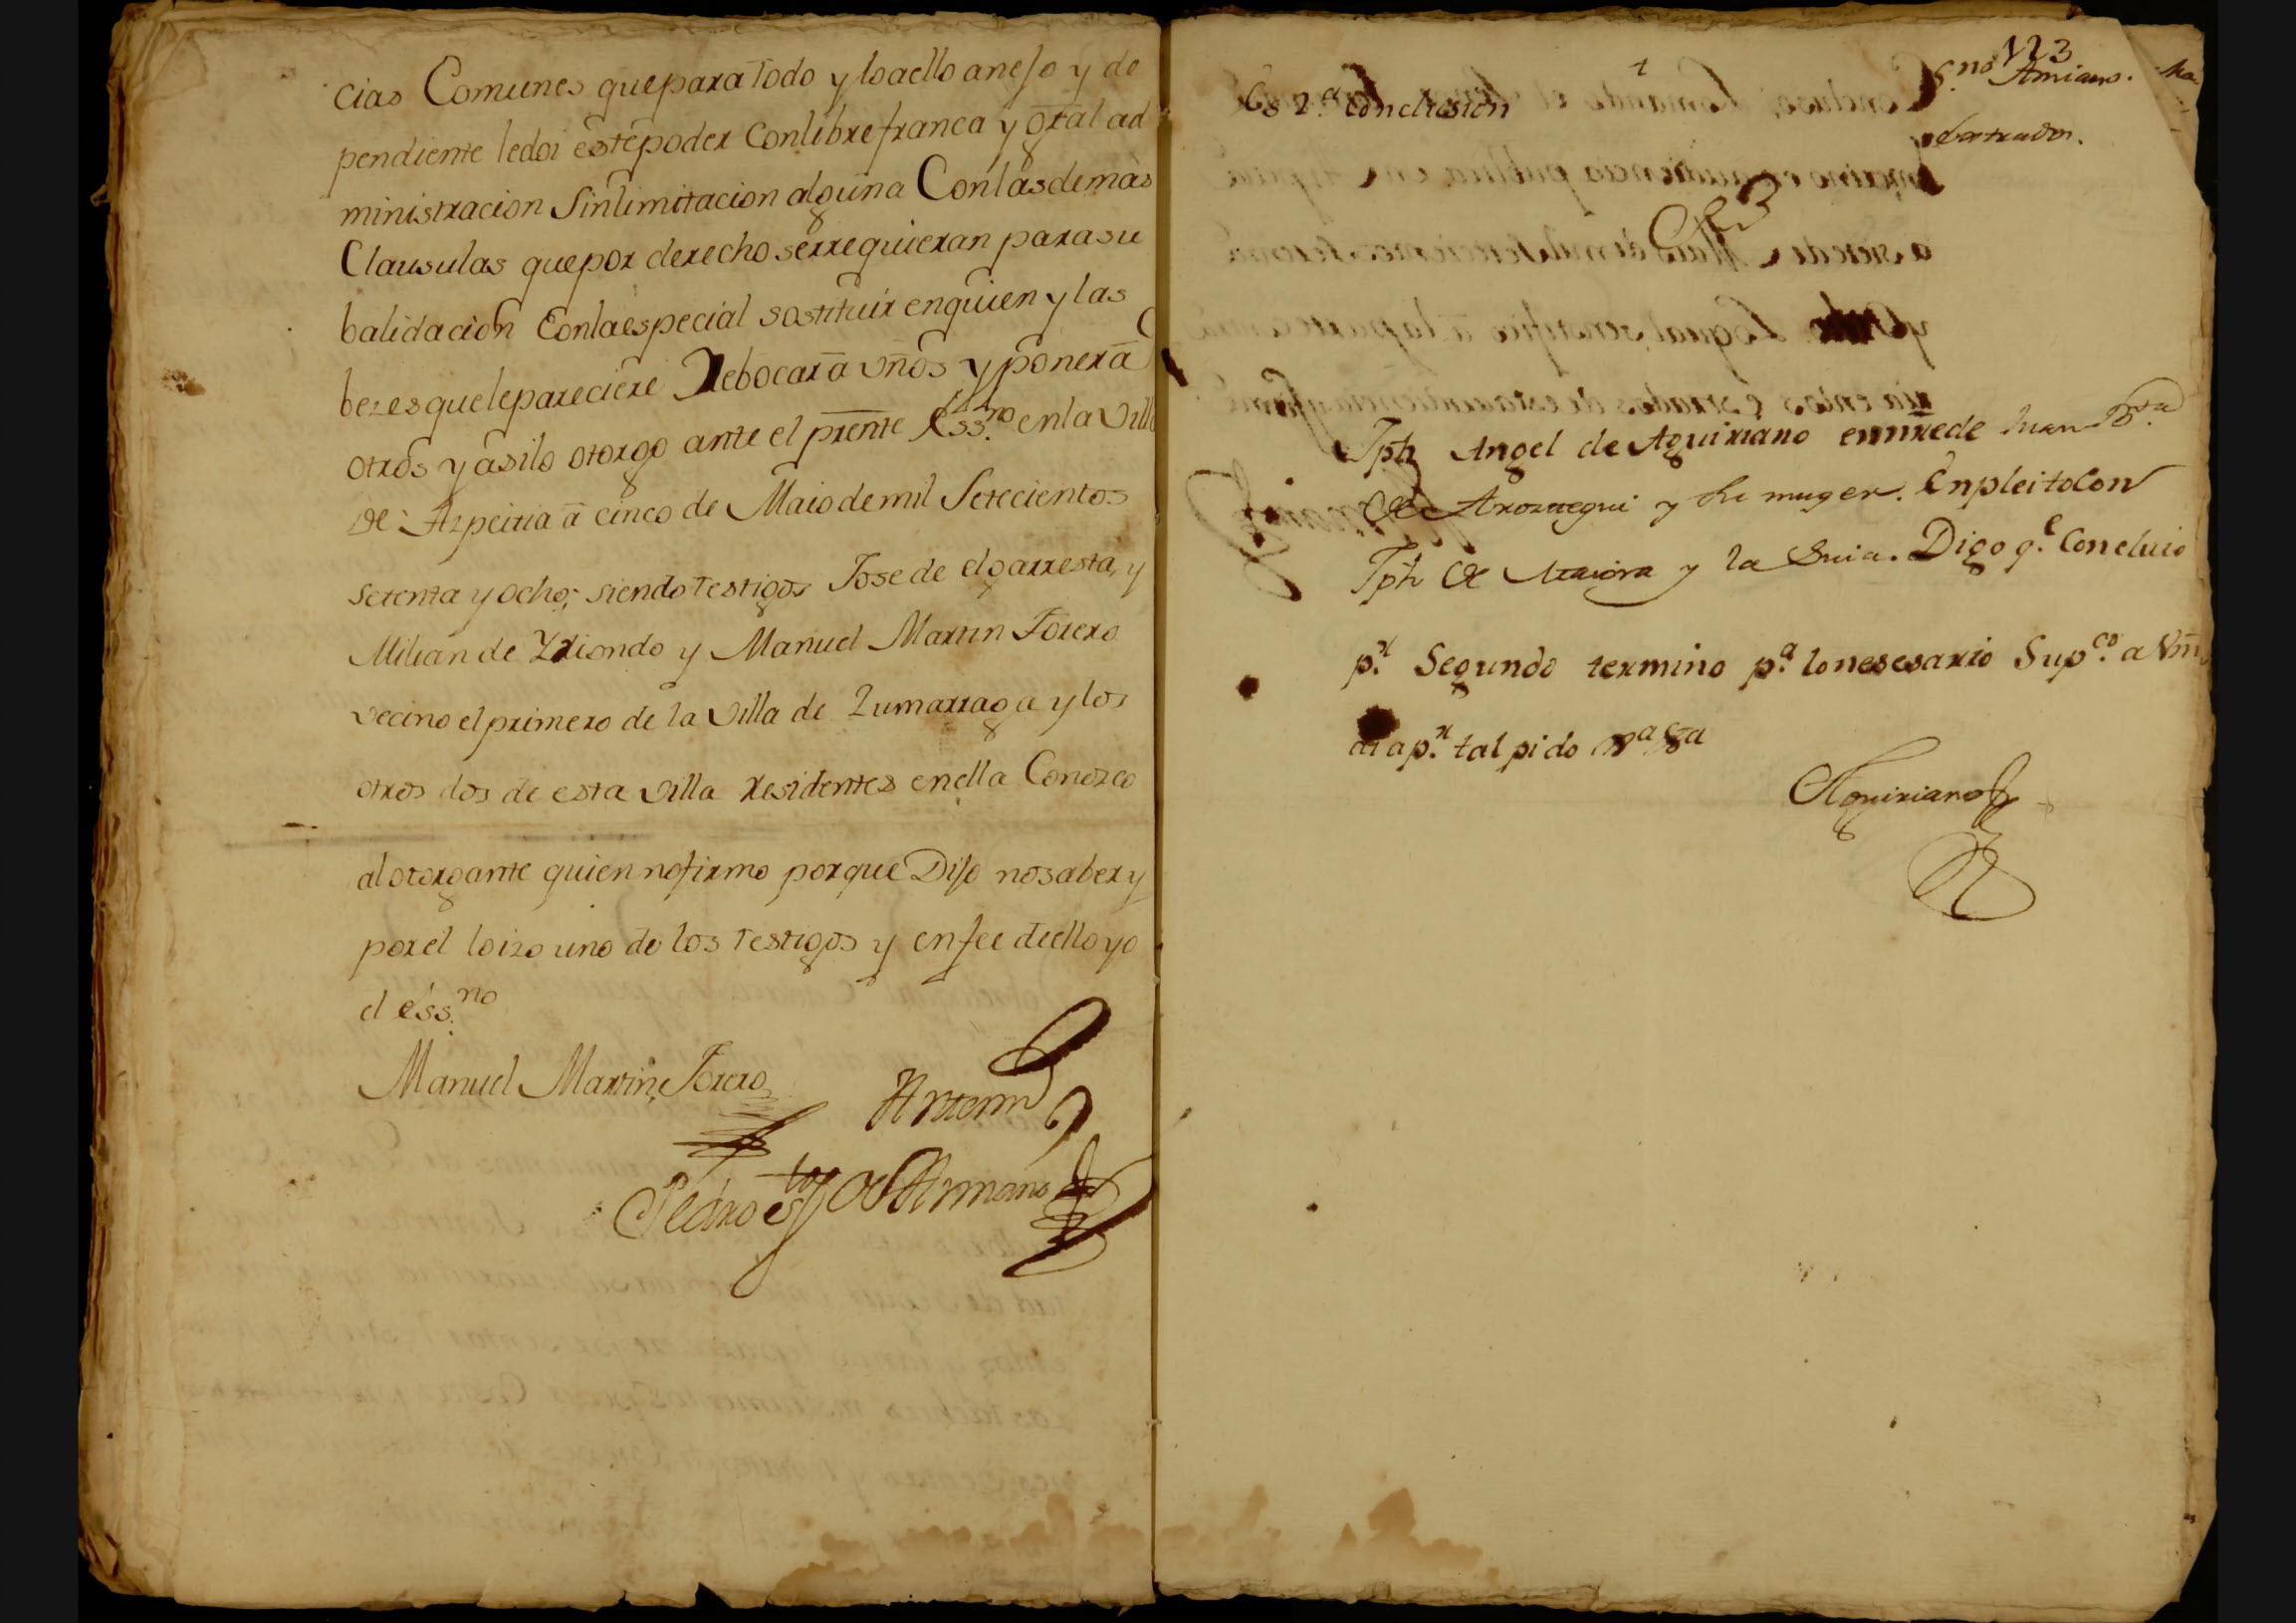 cias Comunes que para todo y lo a ello anejo y de
pendiente le doi este poder Con libre franca y gral ad
ministracion Sin limitacion alguna Con las demas
Clausulas que por derecho se rrequieran para su
balidacion Con la especial sostituir en quien y las
bezes que le pareciere Rebocar a unos y poner a
otros y asi lo otorgo ante el presnte Ess.no en la Villa
de Azpeitia a cinco de Maio de mil Setecientos
setenta y ocho; siendo testigos Jose de elgarresta, y
Milian de Yriondo y Manuel Martin Forero
vecino el primero de la Villa de Zumarraga y los
otros dos de esta Villa Residentes en ella Conozco
al otorgante quien no firmo porque Dijo no saber y
por el lo izo uno de los testigos y en fee de ello yo
el ess.no
Manuel Martin Forero
Antemi
Pedro de Amiano
123
S.no Amiano.
Estrados.
2.a Conclusion
Jph Angel de Aguiriano en nre de Juan Bta
de Aroztegui y Su muger. En pleito Con
Jph de y la Suia. Digo q.e Concluio
p.r Segundo termino p.a lo nesesario Sup.co a Vm
aia p.r tal pido
Aguiriano